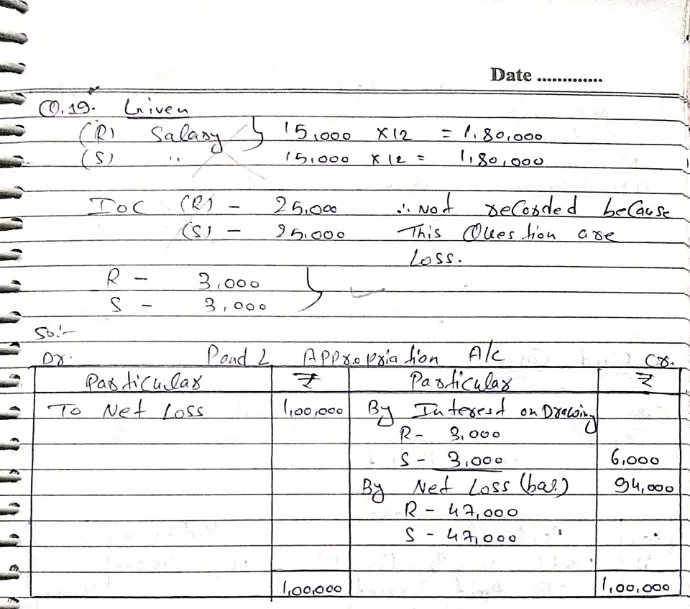 Date .............
Q.19. Given
(R) Salary } 15,000 X12 = 1,80,000
(S) " 15,000 X12 = 1,80,000
IOC (R) - 25,000 ∴ Not recorded because
(S) - 25,000 This Question are
Loss.
R - 3,000
S - 3,000
So:-
Dr. P and L Appropriation A/c Cr.
Particular ₹ Particular ₹
To Net Loss 1,00,000 By Interest on Drawing
R - 3,000
S - 3,000 6,000
By Net Loss (bal.) 94,000
R - 47,000
S - 47,000
1,00,000 1,00,000